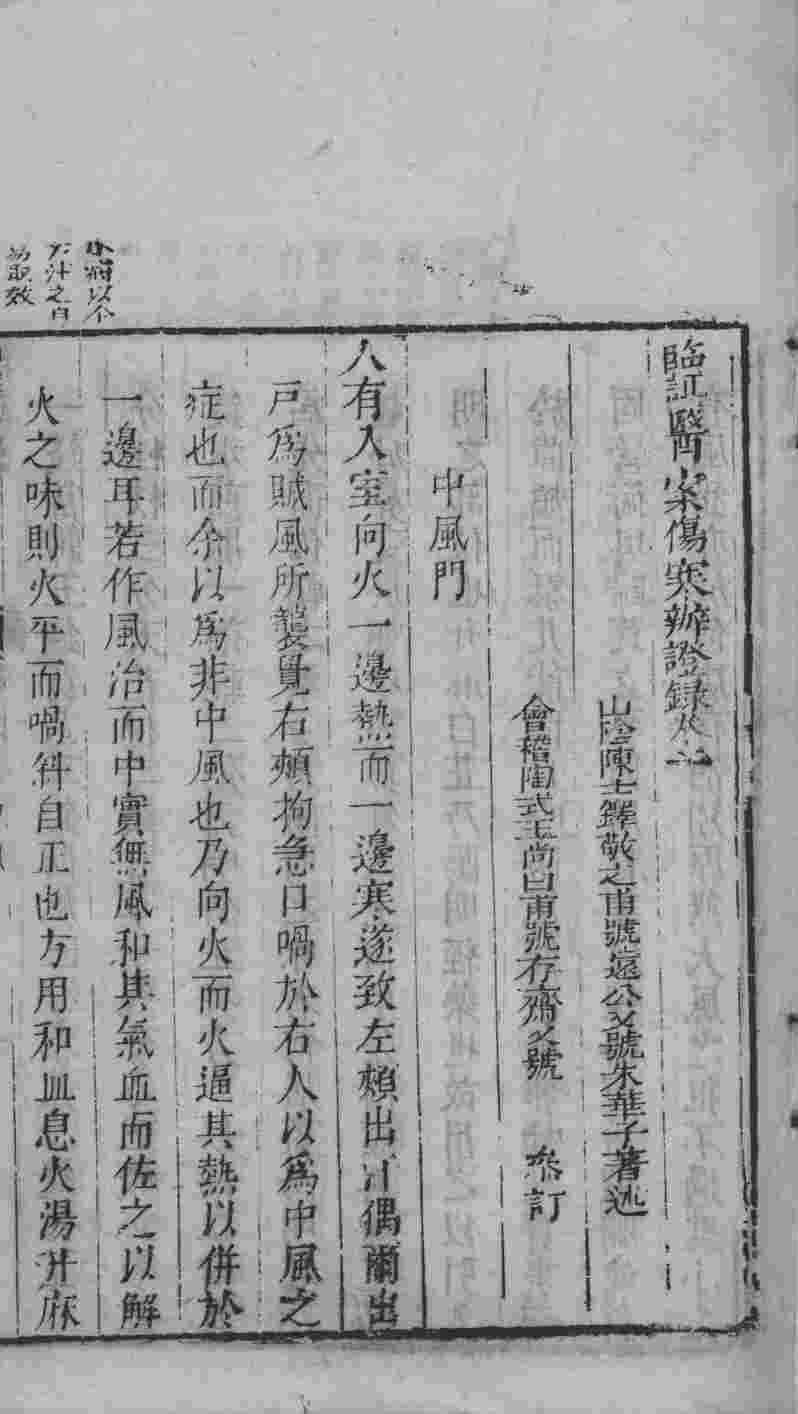 臨証醫案傷寒辦證錄卷
山陰陳士鐸敬之甫號遠公又號朱華子著述
會稽陶式玉尚白甫號存齋又號 叅訂
中風門
人有入室向火一邊熱而一邊寒遂致左頰出汗偶爾出
戸爲賊風所襲覺右頰拘急口喎於右人以爲中風之
症也而余以爲非中風也乃向火而火逼其熱以併於
一邊耳若作風治而中實無風和其氣血而佐之以解
火之味則火平而喎斜自正也方用和血息火湯升麻
以个
汁之
取效